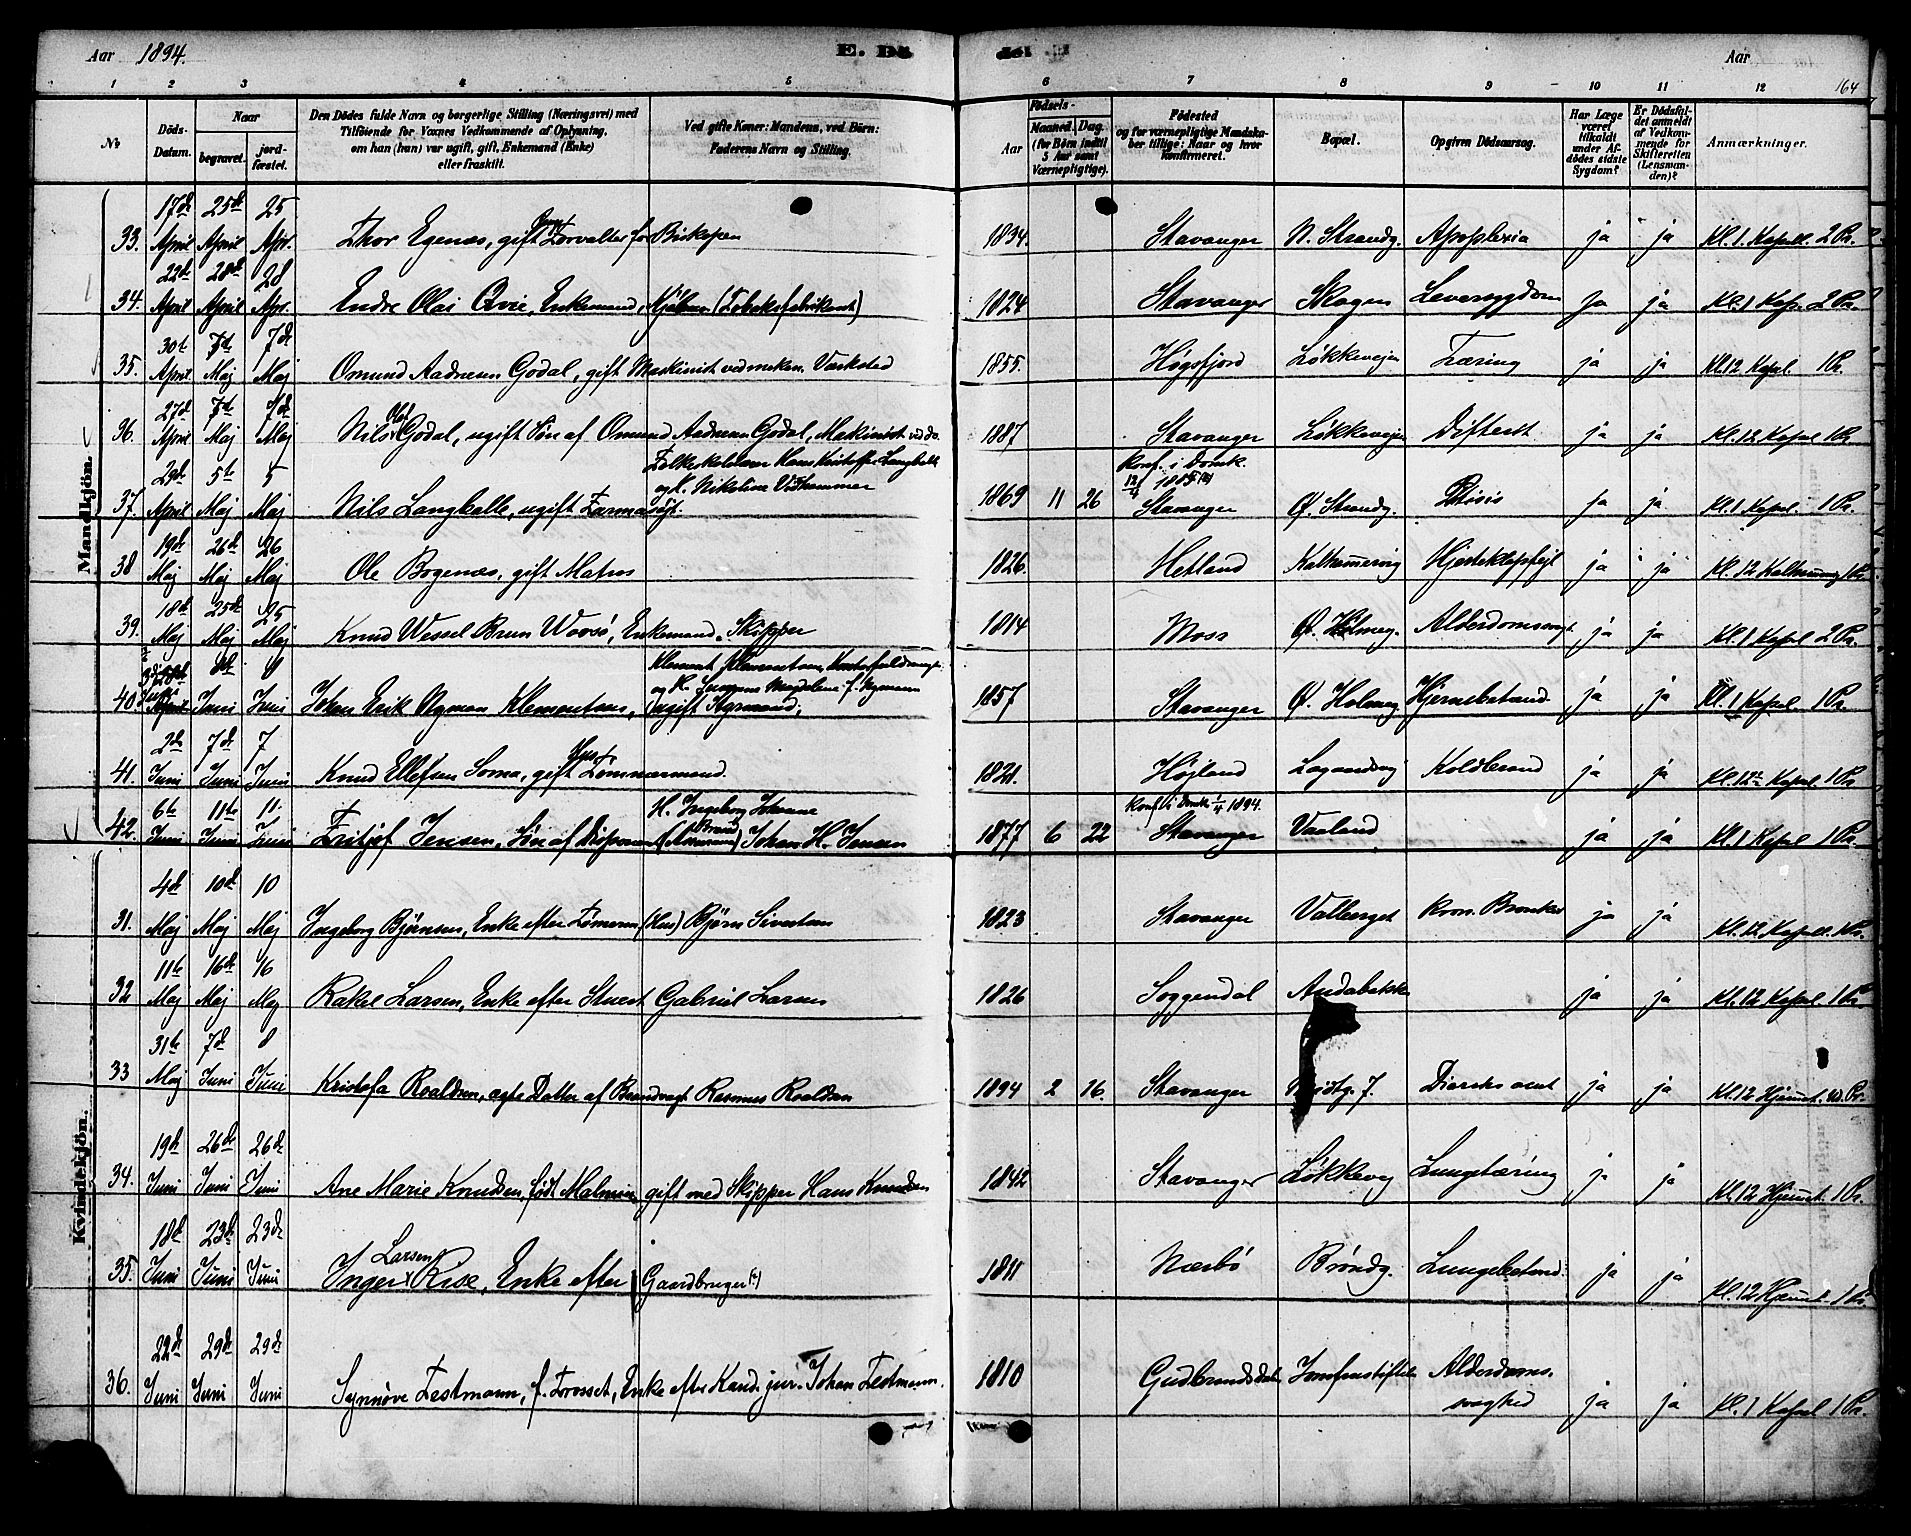 Aar 1894. E. Dö del Aar 164
1 2 3 4 5 6 7 8 9 10 11 12
No
Döds-Datum.
Naar
begravet. jord-fæstet.
Den Dödes fulde Navn og borgerlige Stilling (Næringsvei) med
Tilföiende for Voxnes Vedkommende af Oplysning,
om han (hun) var ugift, gift, Enkemand (Enke)
eller fraskilt.
Ved gifte Koner: Mandens, ved Börn:
Faderens Navn og Stilling.
Aar
Födsels-
Maaned. Dag.
(for Börn indtil
5 Aar samt
Værnepligtige).
Födested
og for værnepligtige Mandska-
ber tillige: Naar og hvor
konfirmeret.
Bopæl.
Opgiven Dödsaarsag.
Har Læge
været
tilkaldt
under Af-
dödes sidste
Sygdom?
Er Dödsfal-
det anmeldt
af Vedkom-
mende for
Skifteretten
(Lensman-
den)?
Anmærkninger.
Mandkjön.
33. 17de April 25de April 25 Apr. Thor Egenæs, gift Forvalter for Biskopen 1834. Stavanger N. Strandg. Apoplexia ja ja Kl. 1. Kapell. 2 Pr.
34. 22de April 28de April 28 Apr. Endre Olai Qvie, Enkemand, Kjøbm. (Tobaksfabrikant) 1824 Stavanger Skagen Leversygdom ja ja Kl. 1 Kap. 2 Pr.
35. 30te April 7de Maj 7de Maj Omund Aadnesen Godal, gift Maskinist ved meken. Værksted 1855. Høgsfjord Løkkevejen Tæring ja ja Kl. 12 Kapel 1 Pr.
36. 27de April 7de Maj 7de Maj Nils Olai Godal, ugift Søn af Omund Aadnesen Godal, Maskinist ved do. 1887 Stavanger Løkkevejen Difterit ja ja Kl. 12 Kapel 1 Pr.
37. 29de April 5te Maj 5 Maj Nils Langballe, ugift Farmasøjt.
Folkeskolelærer Hans Kristoffer Langballe
og H. Nikoline Vedhammer
1869 11 26 Konf. i Domk. 12/4 1885 Stavanger Ø. Strandg. Ptisis ja ja Kl. 1 Kapel. 1 Pr.
38 19de Maj 26de Maj 26 Maj Ole Bogenæs, gift Matros 1826. Hetland Hjerteklapfejl ja ja Kl. 12 1 Pr.
39. 18de Maj 25de Maj 25 Maj Knud Wessel Brun Woosø, Enkemand, Skipper 1814 Moss Ø. Holmeg. Alderdomssvagh. ja ja Kl. 1 Kapel 2 Pr.
40. 3die Juni 8de Juni 8 Juni Johan Erik Nyman Klementsen, ugift Styrmand,
Klement Klementsen,
Magdalene f. Nymann
1857 Stavanger Ø. Holmeg Hjernebetænd. ja ja Kl. 1 Kapel. 1 Pr.
41. 2de Juni 7de Juni 7 Juni Knud Ellefsen Soma, gift Hus Tømmermand. 1821. Højland Lagaardsvej Koldbrand ja ja Kl. 12 Kapel. 1 Pr.
42. 6te Juni 11te Juni 11. Juni Fritjof Jensen, Søn af Disponent Johan H. Jensen
H. Ingeborg Johanne
1877 6 22 Konf. i Domk 1/4 1894. Stavanger Vaaland ja ja Kl. 1 Kapel 1 Pr.
Kvindekjön.
31. 4de Maj 10de Maj 10 Maj Ingeborg Bjørnsen, Enke efter Tømerm. (Hus) Bjørn Sivertsen 1823 Stavanger Valberget kron. Bronkit ja ja Kl. 12. Kapell. 1 Pr.
32 11te Maj 16de Maj 16 Maj Rakel Larsen, Enke efter Stuert Gabriel Larsen 1826 Soggendal Andabekke ja ja Kl. 12 Kapel 1 Pr
33 31te Maj 7de Juni 8 Juni Kristofa Roaldsen, ægte Datter af Brandvagt Rasmus Roaldsen 1894 2 16. Stavanger 7. ja ja Kl. 12 Hjemmet. u. Pr.
34. 19de Juni 26de Juni 26de Juni Ane Marie Knudsen, født Malmin, gift med Skipper Hans Knudsen 1842 Stavanger Løkkevej Lungetæring ja ja Kl. 12 Hjemmet. 1 Pr.
35. 18de Juni 23de Juni 23de Juni Inger Larsen Rise, Enke efter Gaardbruger (?) 1811 Nærbø Brøndg. Lungebetænd. ja ja Kl. 12 Hjemmet 1 Pr
36. 22de Juni 29de Juni 29de Juni Synnøve Festmann, f. Frosset, Enke efter Kand. jur. Johan Festmann. 1810 Gudbrandsdal Jomfrustiftels. Alderdoms-
svaghed ja ja Kl. 1 Kapel 1 Pr.